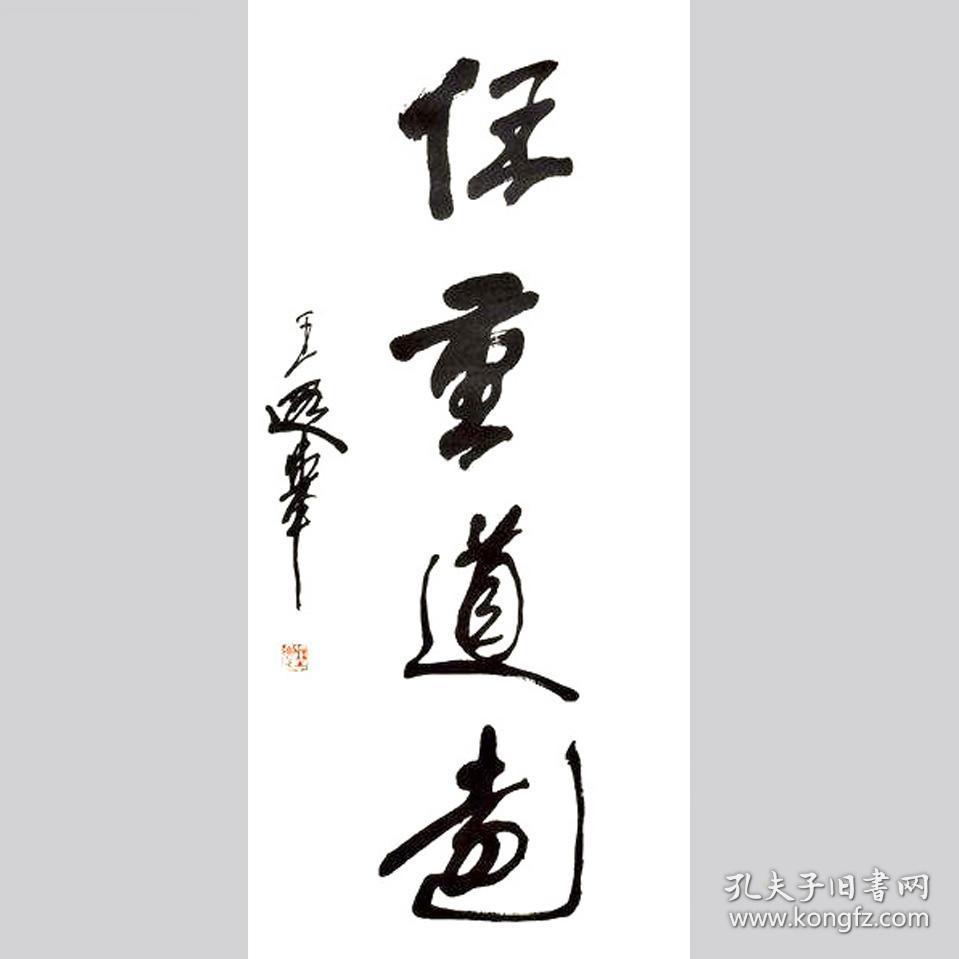 任重道遠
王遐舉
孔夫子旧书网
www.kongfz.com